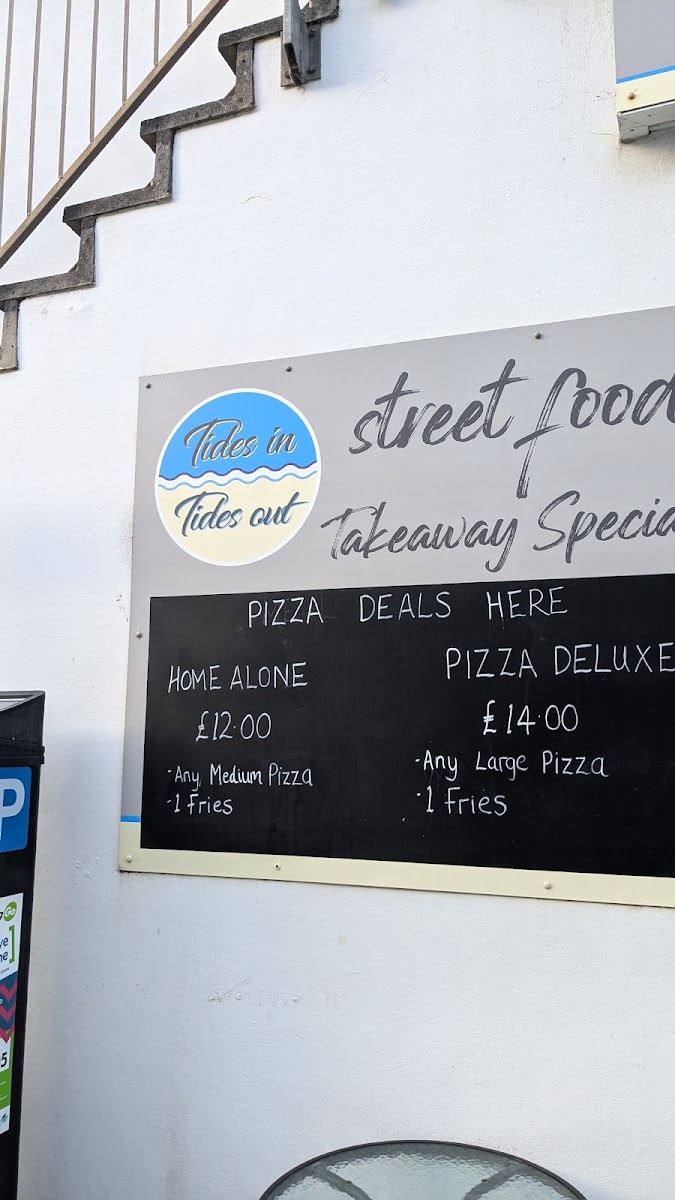 Tides in
Tides out
street food
Takeaway Specia
PIZZA DEALS HERE
HOME ALONE
£12.00
-Any Medium Pizza
-1 Fries
PIZZA DELUXE
£14.00
-Any Large Pizza
-1 Fries
P
Go